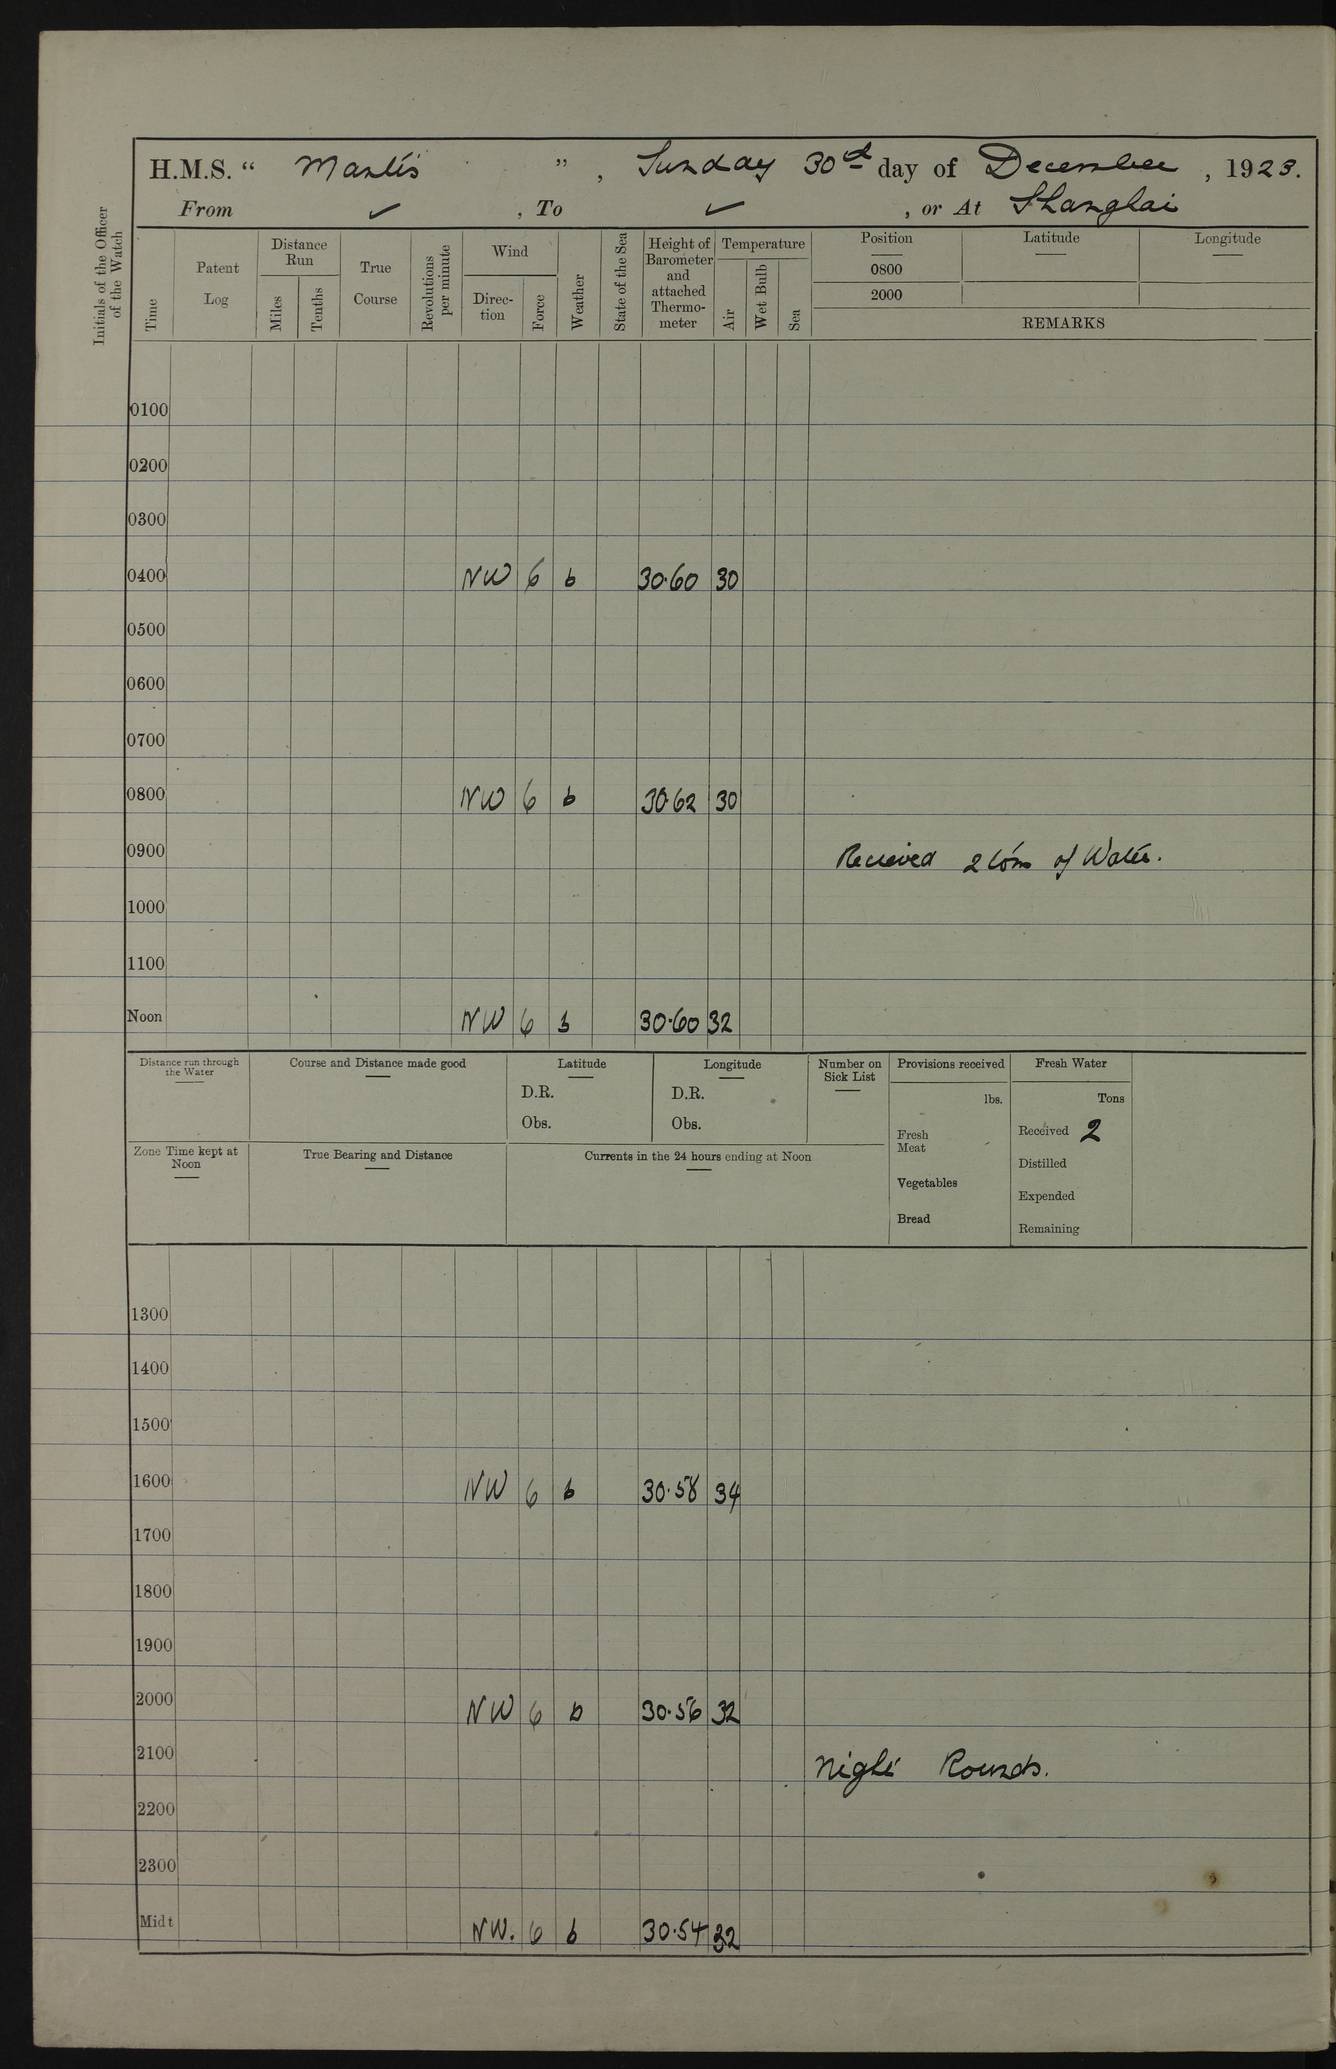 H.M.S. “ Mantis ”, Sunday 30th day of December, 1923.
From ✓, To ✓, or At Shanghai
Initials of the Officer of the Watch
Time
Patent Log
Distance Run
Miles
Tenths
True Course
Revolutions per minute
Wind
Direc-tion
Force
Weather
State of the Sea
Height of Barometer and attached Thermo-meter
Temperature
Air
Wet Bulb
Sea
Position Latitude Longitude
0800
2000
REMARKS
0100
0200
0300
0400 NW 6 b 30.60 30
0500
0600
0700
0800 NW 6 b 30.62 30
0900 Received 2 tons of Water.
1000
1100
Noon NW 6 b 30.60 32
Distance run through the Water
Course and Distance made good
Latitude
D.R.
Obs.
Longitude
D.R.
Obs.
Number on Sick List
Provisions received
lbs.
Fresh Meat
Vegetables
Bread
Fresh Water
Tons
Received 2
Distilled
Expended
Remaining
Zone Time kept at Noon
True Bearing and Distance
Currents in the 24 hours ending at Noon
1300
1400
1500
1600 NW 6 b 30.58 34
1700
1800
1900
2000 NW 6 b 30.56 32
2100 Night Rounds.
2200
2300
Midt NW. 6 b 30.54 32